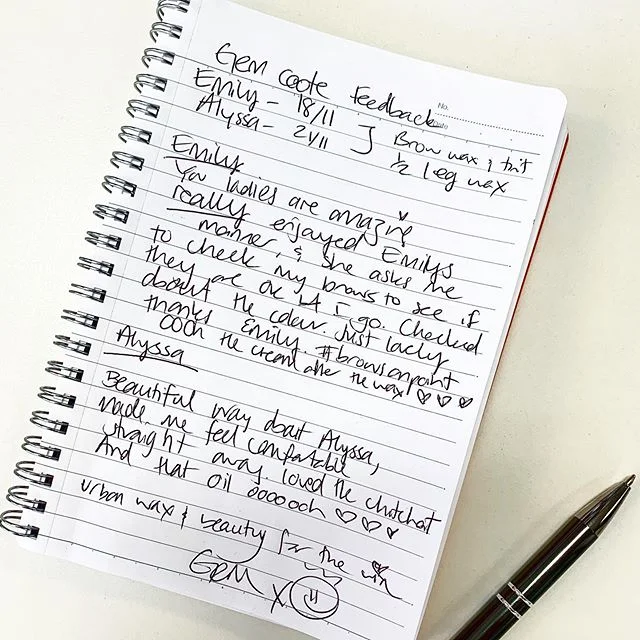 Gem Coote Feedback
No.
Date
Emily - 18/11
Alyssa - 21/11
Brow wax & tint
1/2 leg wax
Emily
You ladies are amazing
really enjoyed Emilys
manner, & she asks me
to check my brows to see if
they are ok b4 I go. Checked
about the colour. Just lovely
thanks Emily #browsonpoint
oooh the cream after the wax ♡♡♡
Alyssa
Beautiful way bout Alyssa,
Made me feel comfortable
straight away. loved the chitchat
And that oil oooooh ♡♡♡
urban wax & beauty for the win
Gem x